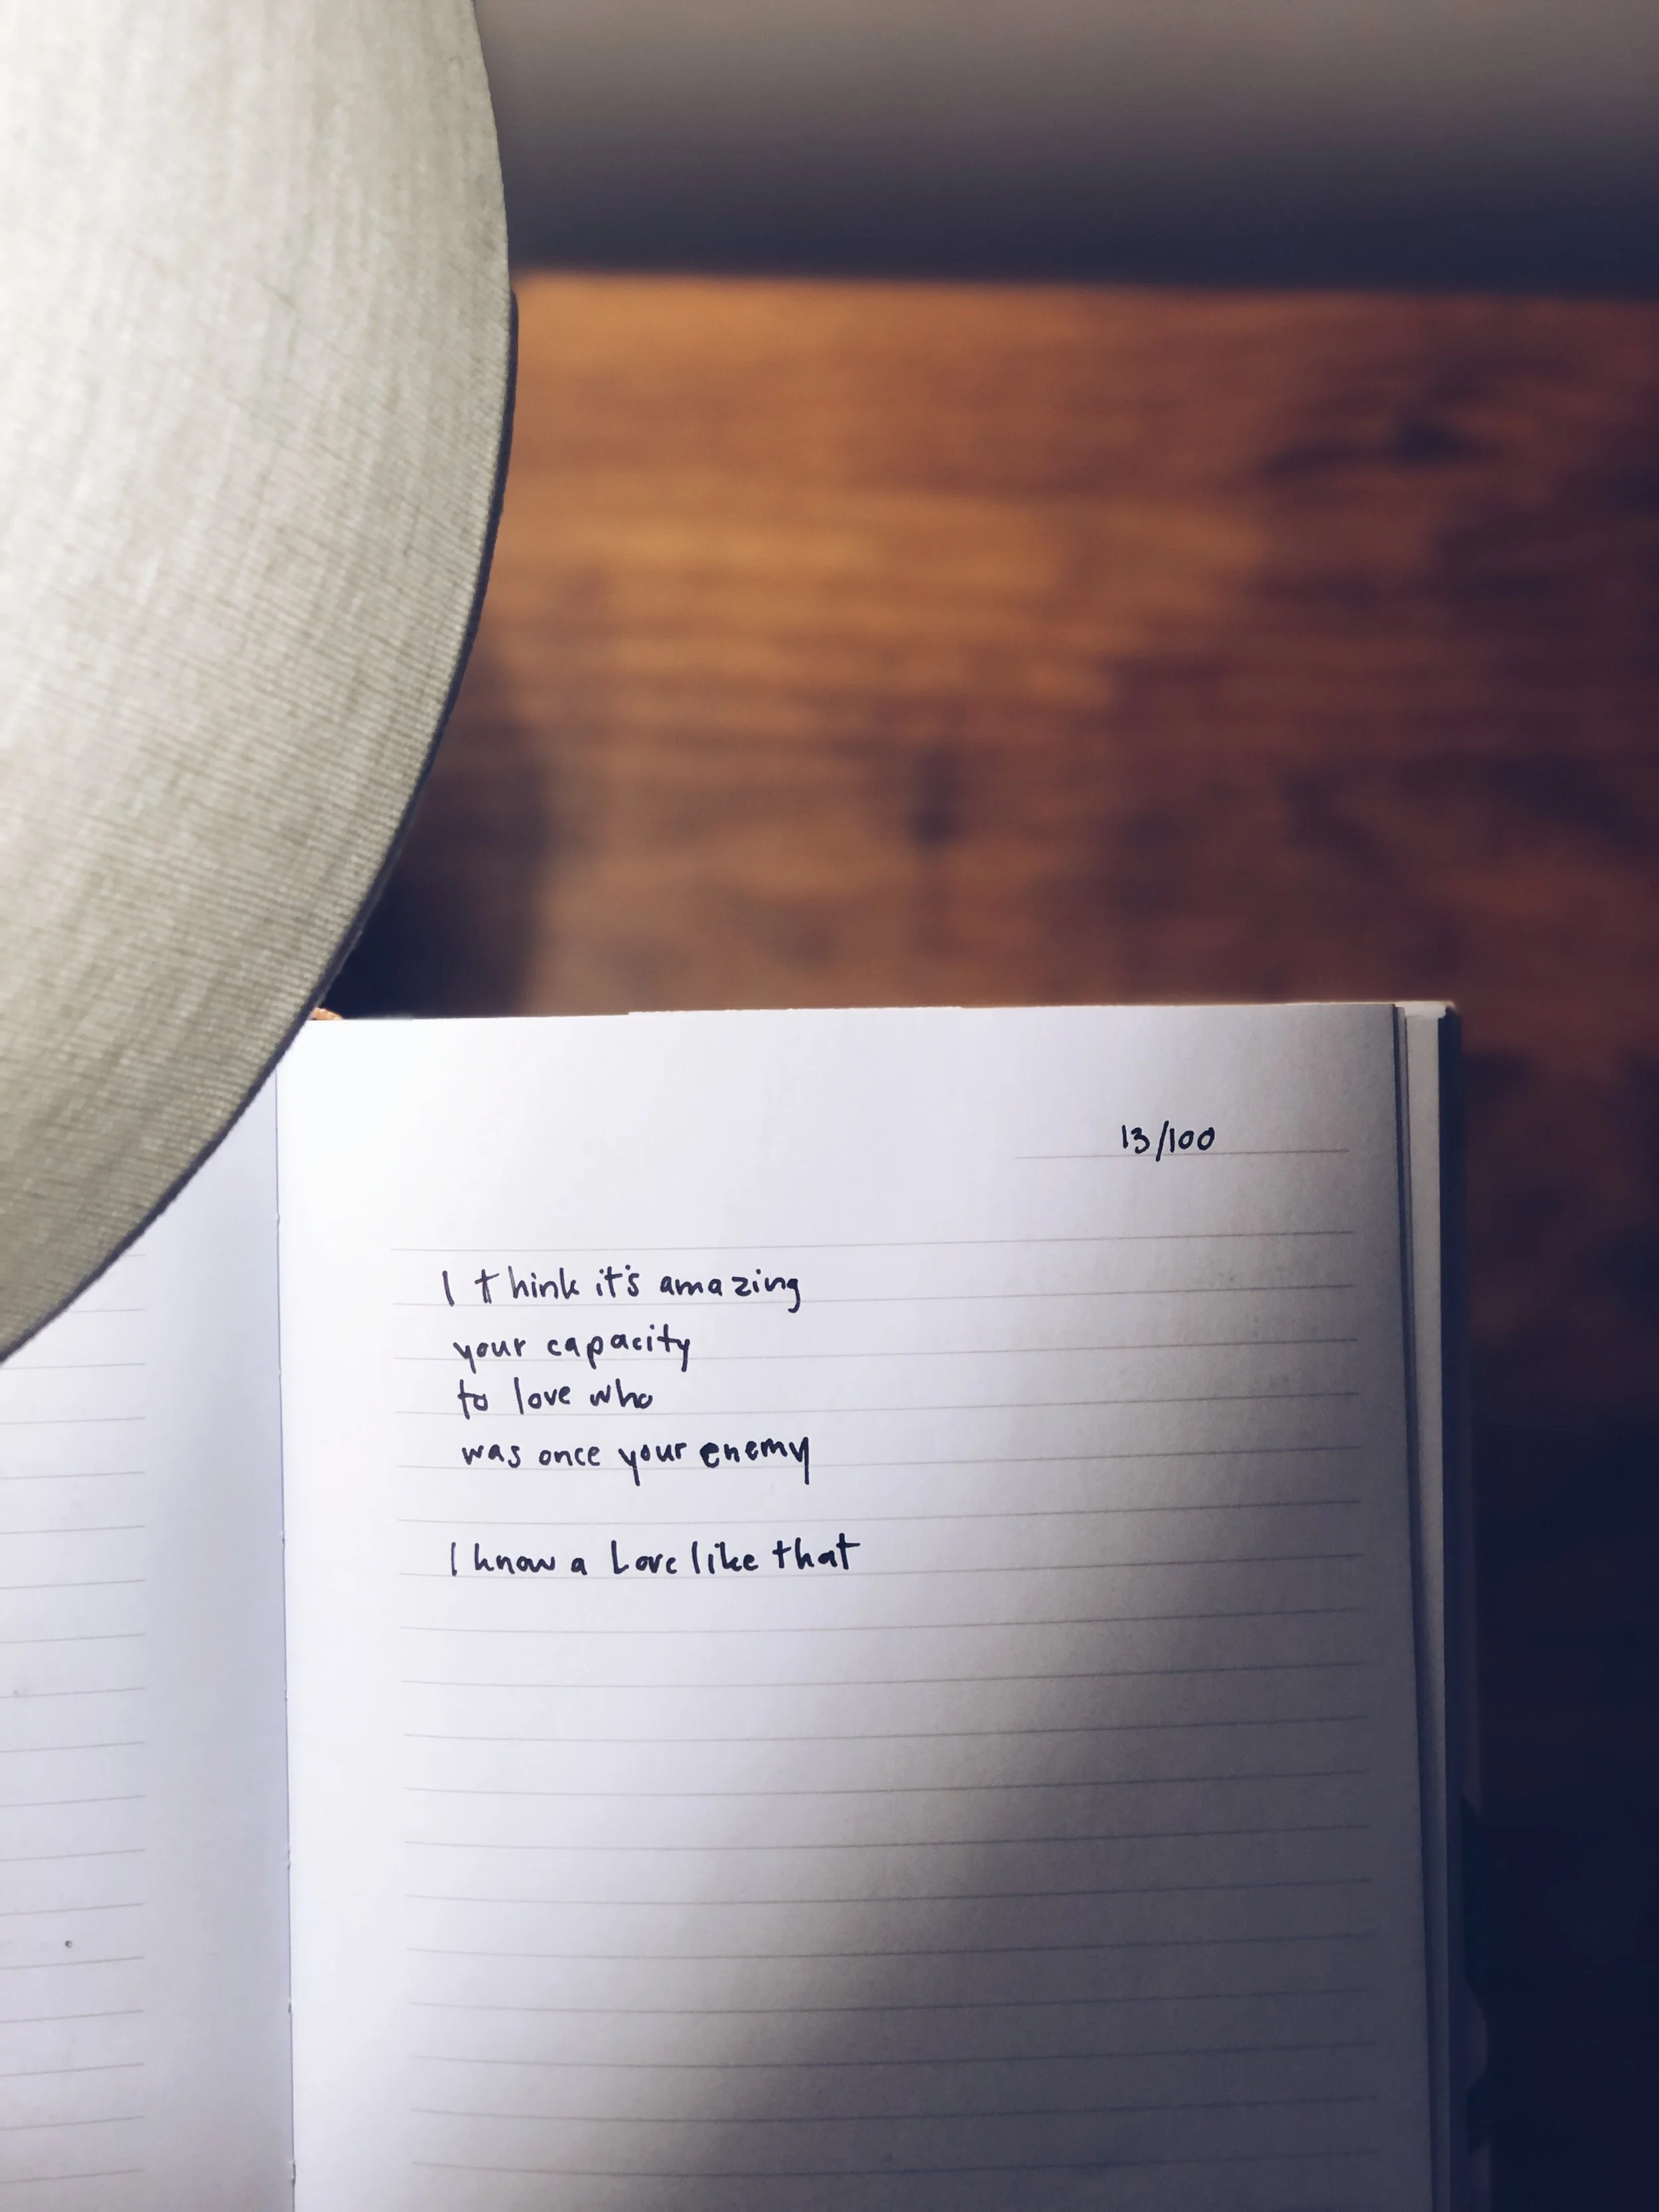 13/100
I think it's amazing
your capacity
to love who
was once your enemy
I know a Love like that